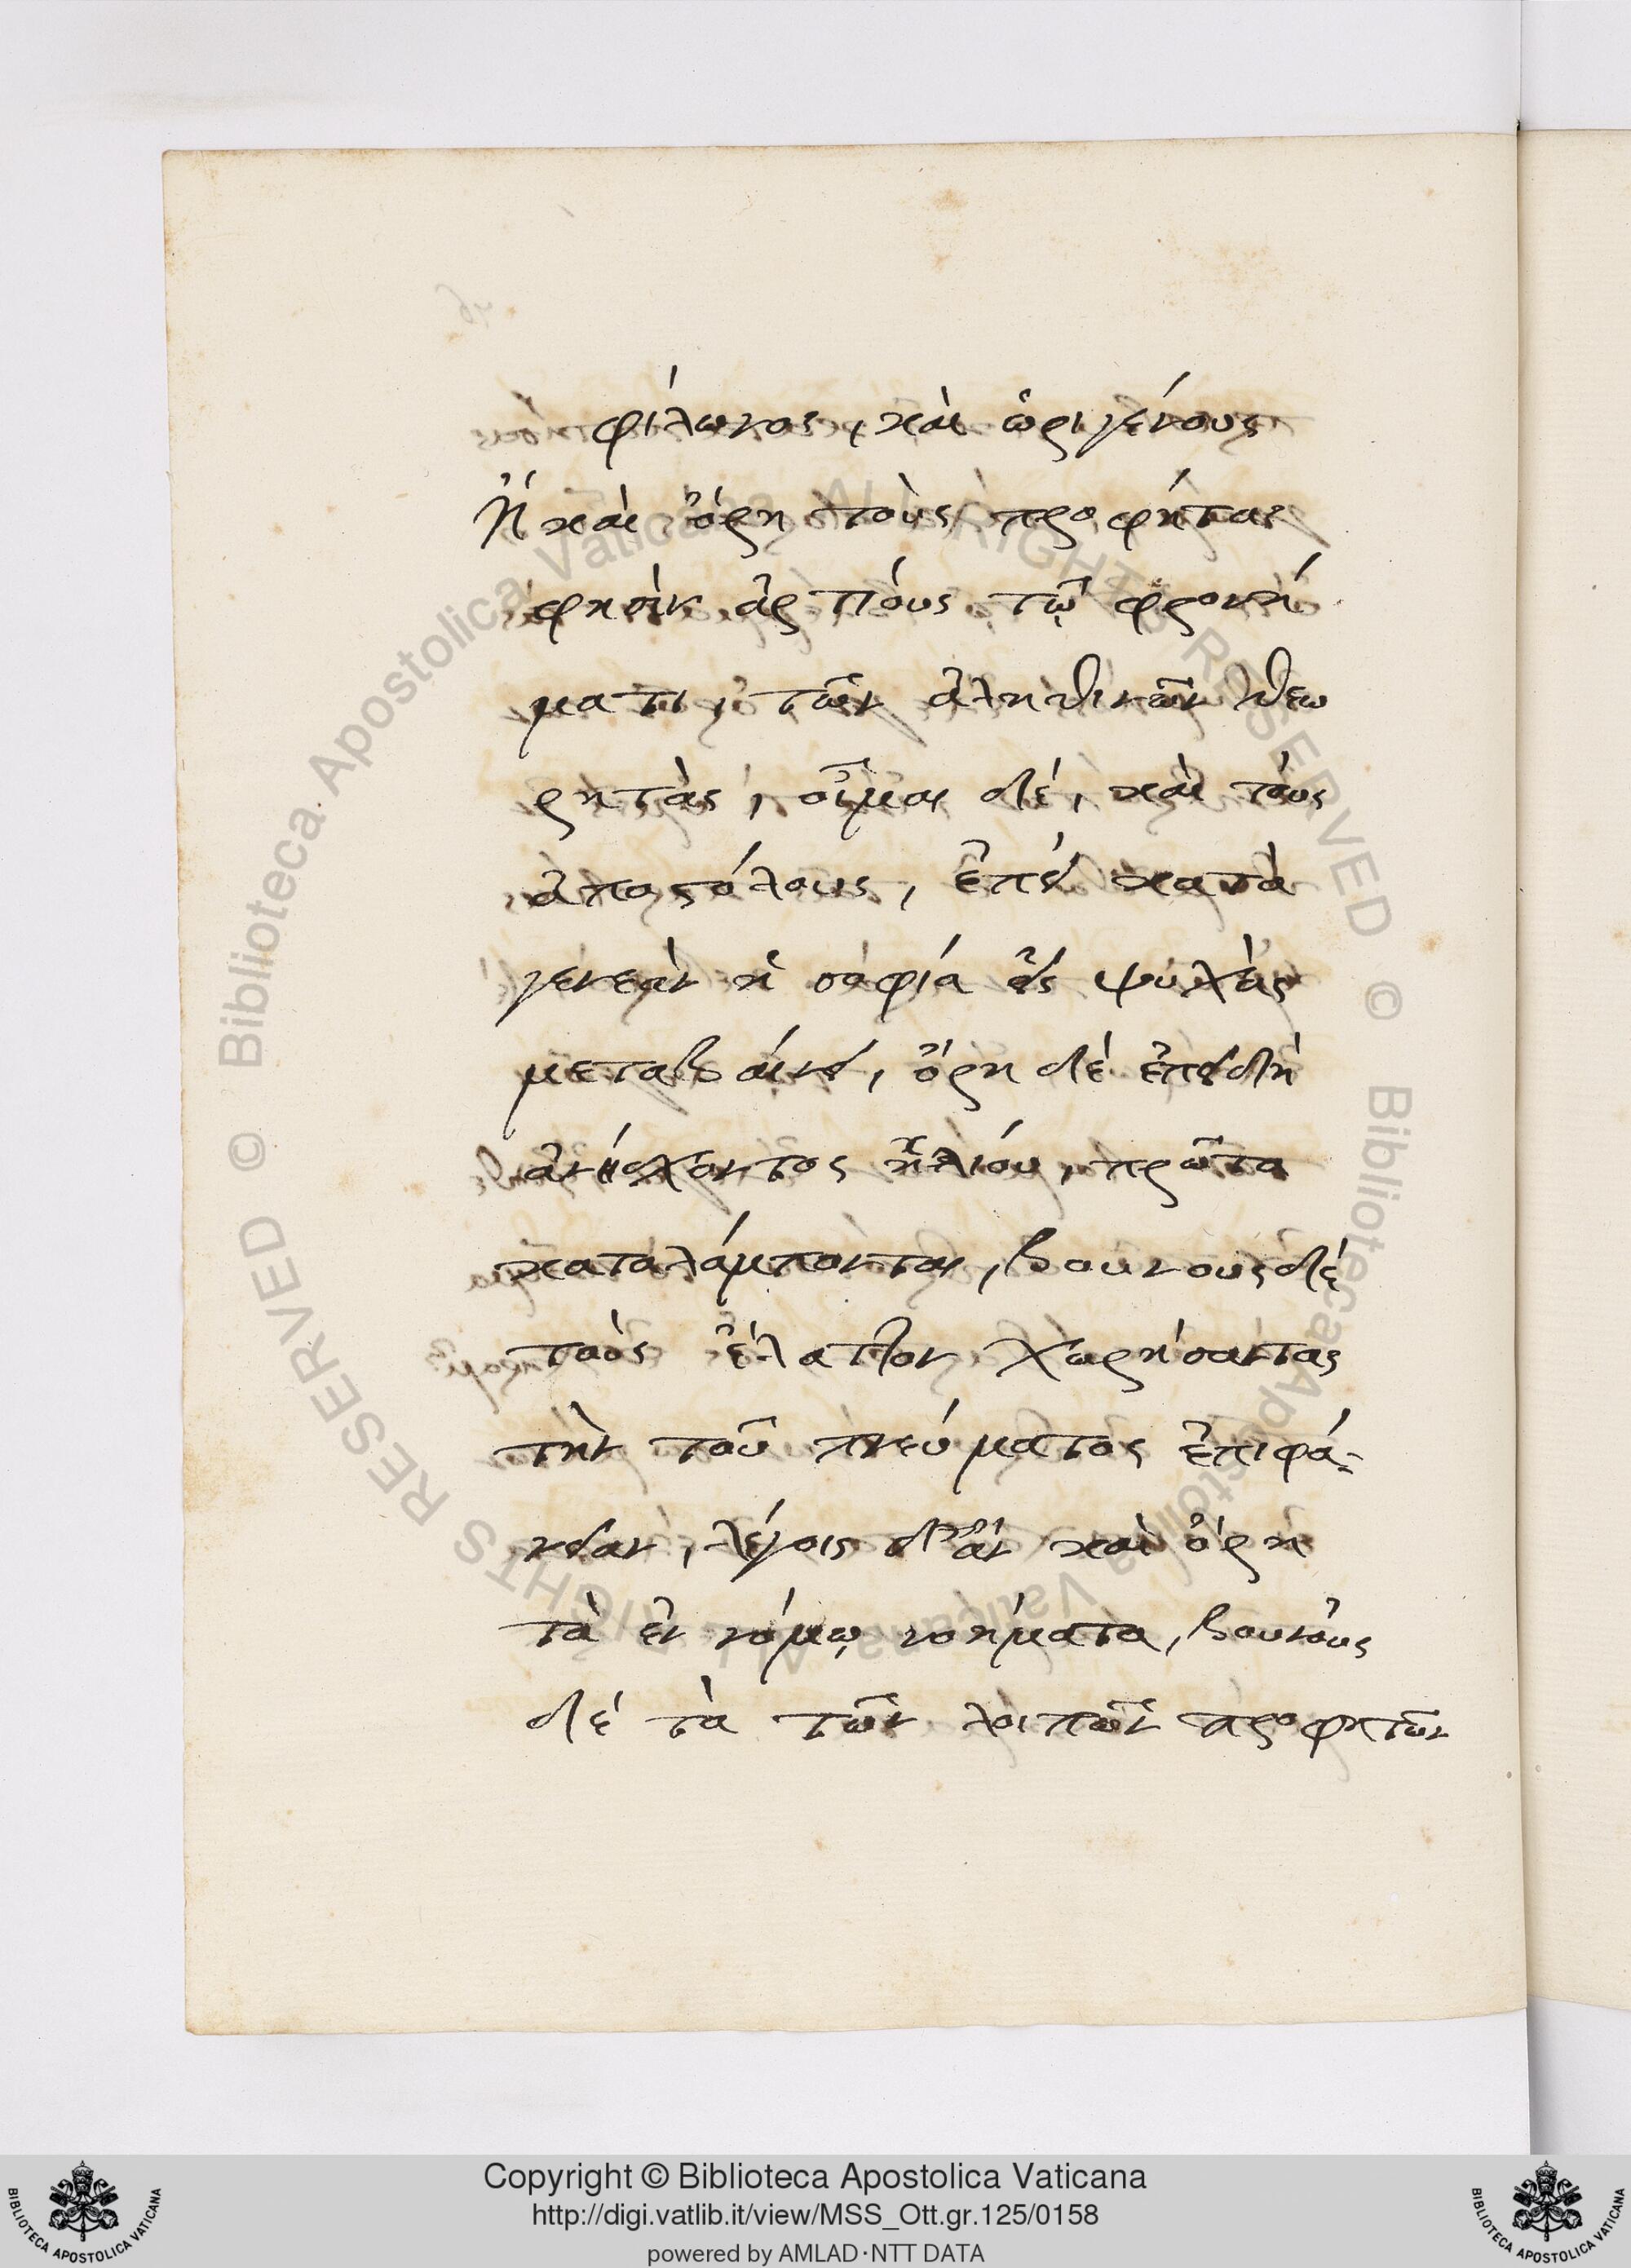 φίλωνος, καὶ ὠριγένους
Ἢ καὶ ὄρη τοὺς προφήτας
φησὶν ἀρτίους τῷ φρονή
ματι, τῶν ἀληθινῶν θεω
ρητάς, οἶμαι δέ, καὶ τοὺς
ἀποστόλους, ἐπεί κατὰ
γενεὰν ἡ σοφία εἰς ψυχὰς
μεταβαίνει, ὄρη δὲ ἐπειδὴ
ἀνίσχοντος ἡλίου, πρῶτα
καταλάμπονται, βουνοὺς δὲ
τοὺς ἔλαττον χωρήσαντας
τὴν τοῦ πνεύματος ἐπιφά-
νειαν, λέγοις δ' ἂν καὶ ὄρη
τὰ ἐν νόμῳ νοήματα, βουνοὺς
δὲ τὰ τῶν λοιπῶν προφητῶν
© Biblioteca Apostolica Vaticana ALL RIGHTS RESERVED
© Biblioteca Apostolica Vaticana ALL RIGHTS RESERVED
Copyright © Biblioteca Apostolica Vaticana
http://digi.vatlib.it/view/MSS_Ott.gr.125/0158
powered by AMLAD·NTT DATA
BIBLIOTECA APOSTOLICA VATICANA
BIBLIOTECA APOSTOLICA VATICANA